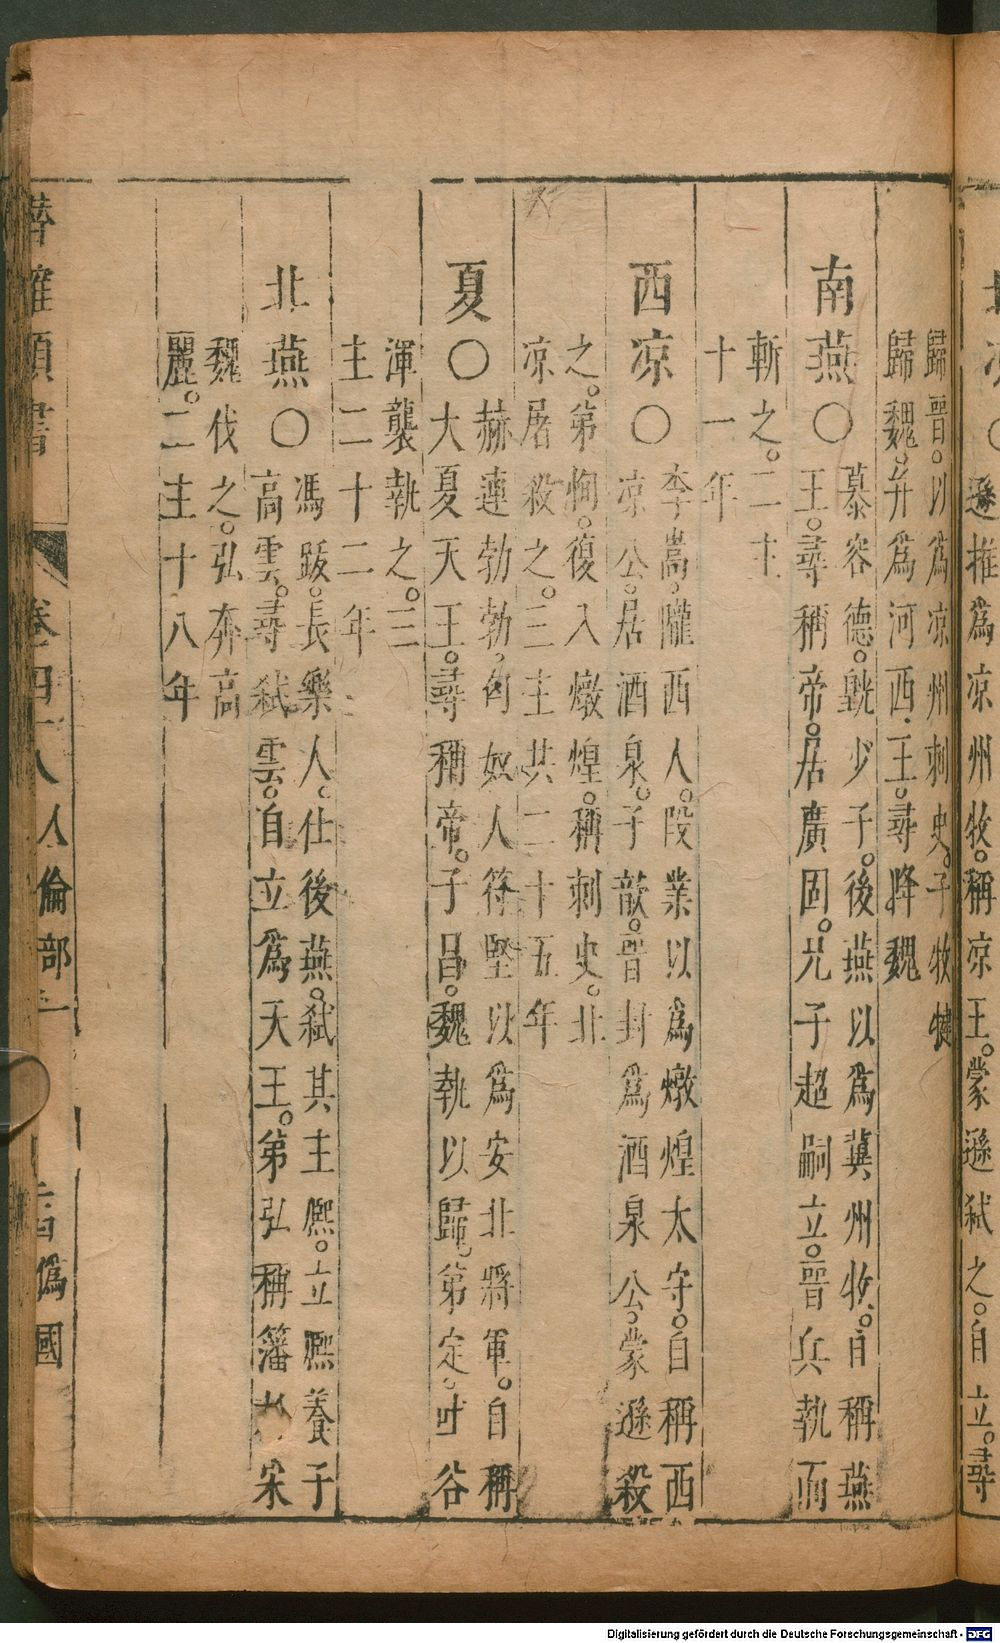 遜推爲凉州牧。稱凉王。蒙遜弑之。自立。尋
歸晉。以爲凉州刺史。子牧犍
歸魏。并爲河西王。尋降魏
南燕〇
慕容德。皝少子。後燕以爲冀州牧。自稱燕
王。尋稱帝。居廣固。兄子超嗣立。晉兵執而
斬之。二主
十一年
西凉〇
李暠。隴西人。段業以爲燉煌太守。自稱西
凉公。居酒泉。子歆。晉封爲酒泉公。蒙遜殺
之。弟恂。復入燉煌。稱刺史。北
凉屠殺之。三主共二十五年
夏〇
赫連勃勃。匈奴人。符堅以爲安北將軍。自稱
大夏天王。尋稱帝。子昌。魏執以歸。弟定。吐谷
渾襲執之。三
主二十二年
北燕〇
馮跋。長樂人。仕後燕。弑其主熈。立熈養子
高雲。尋弑雲。自立爲天王。弟弘稱籓於宋
魏伐之。弘奔高
麗。二主十八年
卷 人倫部 僞國
Digitalisierung gefördert durch die Deutsche Forschungsgemeinschaft - DFG